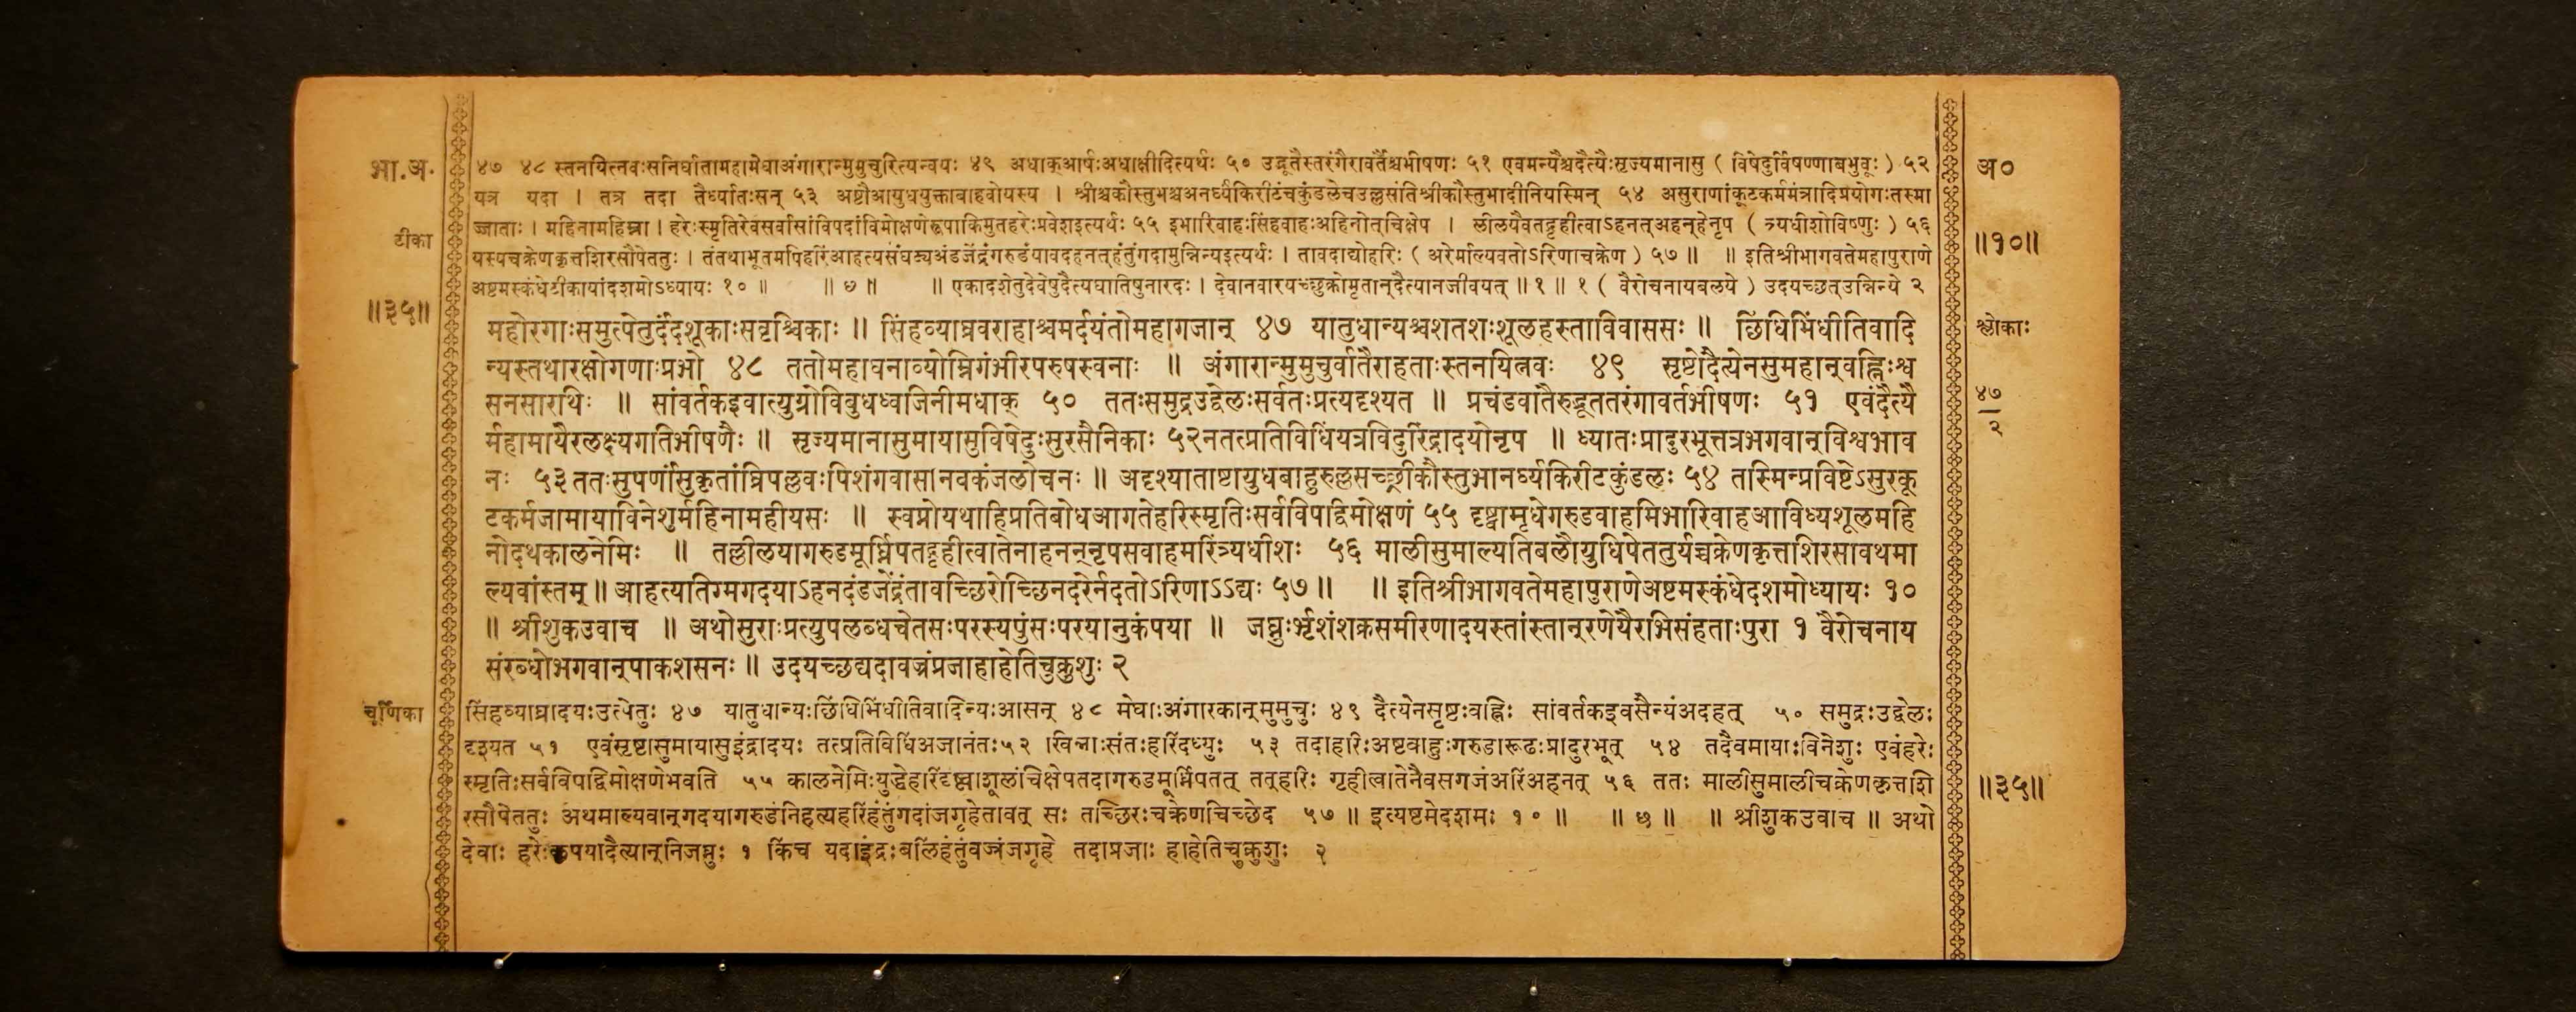 भा.अ.
टीका
॥३५॥
४७ ४८ स्तनयित्नवःसनिर्घातामहामेघाअंगारान्मुमुचुरित्यन्वयः ४९ अधाक्आर्षःअधाक्षीदित्यर्थः ५० उद्भूतैस्तरंगैरावर्तैश्चभीषणः ५१ एवमन्यैश्चदैत्यैःसृज्यमानासु ( विषेदुर्विषण्णाबभुवूः ) ५२
यत्र यदा । तत्र तदा तैर्ध्यातःसन् ५३ अष्टौआयुधयुक्ताबाहवोयस्य । श्रीश्चकौस्तुभश्चअनर्घ्यकिरीटंचकुंडलेचउल्लसंतिश्रीकौस्तुभादीनियस्मिन् ५४ असुराणांकूटकर्ममंत्रादिप्रयोगःतस्मा
ज्जाताः । महिनामहिम्ना । हरेःस्मृतिरेवसर्वासांविपदांविमोक्षणेरूपाकिमुतहरेःप्रवेशइत्यर्थः ५५ इभारिवाहःसिंहवाहःअहिनोत्चिक्षेप । लीलयैवतद्गृहीत्वाऽहनत्अहन्हेनृप ( त्र्यधीशोविष्णुः ) ५६
यस्पचक्रेणकृत्तशिरसौपेततुः । तंतथाभूतमपिहरिंआहत्यसंघट्यअंडजेंद्रंगरुडंयावदहनत्हंतुंगदामुन्निन्यइत्यर्थः । तावदाद्योहरिः ( अरेर्माल्यवतोऽरिणाचक्रेण ) ५७ ॥ ॥ इतिश्रीभागवतेमहापुराणे
अष्टमस्कंधेटीकायांदशमोऽध्यायः १० ॥ ॥ ७ ॥ ॥ एकादशेतुदेवेषुदैत्यघातिषुनारदः । देवानवारयच्छुक्रोमृतान्दैत्यानजीवयत् ॥ १ ॥ १ ( वैरोचनायबलये ) उदयच्छत्उन्निन्ये २
महोरगाःसमुत्पेतुर्दंदशूकाःसवृश्चिकाः ॥ सिंहव्याघ्रवराहाश्चमर्दयंतोमहागजान् ४७ यातुधान्यश्चशतशःशूलहस्ताविवाससः ॥ छिंधिभिंधीतिवादि
न्यस्तथारक्षोगणाःप्रभो ४८ ततोमहाघनाव्योम्निगंभीरपरुषस्वनाः ॥ अंगारान्मुमुचुर्वातैराहताःस्तनयित्नवः ४९ सृष्टोदैत्येनसुमहान्वह्निःश्व
सनसारथिः ॥ सांवर्तकइवात्युग्रोविबुधध्वजिनीमधाक् ५० ततःसमुद्रउद्वेलःसर्वतःप्रत्यदृश्यत ॥ प्रचंडवातैरुद्धूततरंगावर्तभीषणः ५१ एवंदैत्यै
र्महामायैरलक्ष्यगतिभीषणैः ॥ सृज्यमानासुमायासुविषेदुःसुरसैनिकाः ५२नतत्प्रतिविधिंयत्रविदुरिंद्रादयोनृप ॥ ध्यातःप्रादुरभूत्तत्रभगवान्विश्वभाव
नः ५३ ततःसुपर्णांसकृतांघ्रिपल्लवःपिशंगवासानवकंजलोचनः ॥ अदृश्यताष्टायुधबाहुरुल्लसच्छ्रीकौस्तुभानर्घ्यकिरीटकुंडलः ५४ तस्मिन्प्रविष्टेऽसुरकू
टकर्मजामायाविनेशुर्महिनामहीयसः ॥ स्वप्नोयथाहिप्रतिबोधआगतेहरिस्मृतिःसर्वविपद्विमोक्षणं ५५ दृष्ट्वामृधेगरुडवाहमिभारिवाहआविध्यशूलमहि
नोदथकालनेमिः ॥ तल्लीलयागरुडमूर्ध्निपतद्गृहीत्वातेनाहनन्नृपसवाहमरिंत्र्यधीशः ५६ मालीसुमाल्यतिबलौयुधिपेततुर्यच्चक्रेणकृत्तशिरसावथमा
ल्यवांस्तम् ॥ आहत्यातिग्मगदयाऽहनदंडजेंद्रंतावच्छिरोच्छिनदरेर्नदतोऽरिणाऽऽद्यः ५७ ॥ ॥ इतिश्रीभागवतेमहापुराणेअष्टमस्कंधेदशमोध्यायः १०
॥ श्रीशुकउवाच ॥ अथोसुराःप्रत्युपलब्धचेतसःपरस्यपुंसःपरयानुकंपया ॥ जघ्नुर्भृशंशक्रसमीरणादयस्तांस्तान्रणेयैरभिसंहताःपुरा १ वैरोचनाय
संरब्धोभगवान्पाकशसनः ॥ उदयच्छद्यदावज्रंप्रजाहाहेतिचुक्रुशुः २
चूर्णिका
सिंहव्याघ्रादयःउत्पेतुः ४७ यातुधान्यःछिंधिभिंधीतिवादिन्यःआसन् ४८ मेघाःअंगारकान्मुमुचुः ४९ दैत्येनसृष्टःवह्निः सांवर्तकइवसैन्यंअदहत् ५० समुद्रःउद्वेलः
दृश्यत ५१ एवंसृष्टासुमायासुइंद्रादयः तत्प्रतिविधिंअजानंतः५२ खिन्नाःसंतःहरिंदध्युः ५३ तदाहरिःअष्टबाहुःगरुडारूढःप्रादुरभूत् ५४ तदैवमायाःविनेशुः एवंहरेः
स्मृतिःसर्वविपद्विमोक्षणेभवति ५५ कालनेमिःयुद्धेहरिंदृष्ट्वाशूलांचिक्षेपतदागरुडमूर्ध्निपतत् तत्हरिः गृहीत्वातेनैवसगजंअरिंअहनत् ५६ ततः मालीसुमालीचक्रेणकृत्तशि
रसौपेततुः अथमाल्यवान्गदयागरुडंनिहत्यहरिंहंतुंगदांजगृहेतावत् सः तच्छिरःचक्रेणचिच्छेद ५७ ॥ इत्यष्टमेदशमः १० ॥ ॥ ७ ॥ ॥ श्रीशुकउवाच ॥ अथो
देवाः हरेःकृपयादैत्यान्निजघ्नुः १ किंच यदाइंद्रःबलिंहंतुंवज्रंजगृहे तदाप्रजाः हाहेतिचुक्रुशुः २
अ०
॥१०॥
श्लोकाः
४७
२
॥३५॥